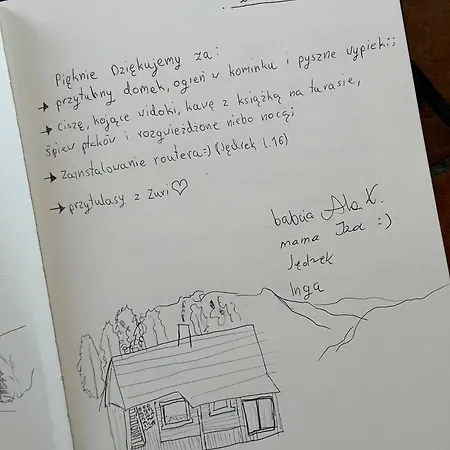 Pięknie Dziękujemy za:
→ przytulny domek, ogień w kominku i pyszne wypieki;
→ ciszę, kojące widoki, kawę z książką na tarasie,
śpiew ptaków i rozgwieżdżone niebo nocą;
→ zainstalowanie routera:) (Jędrek l.16)
→ przytulasy z Zuri ♡
babcia Ala K.
mama Iza :)
Jędrek
Inga